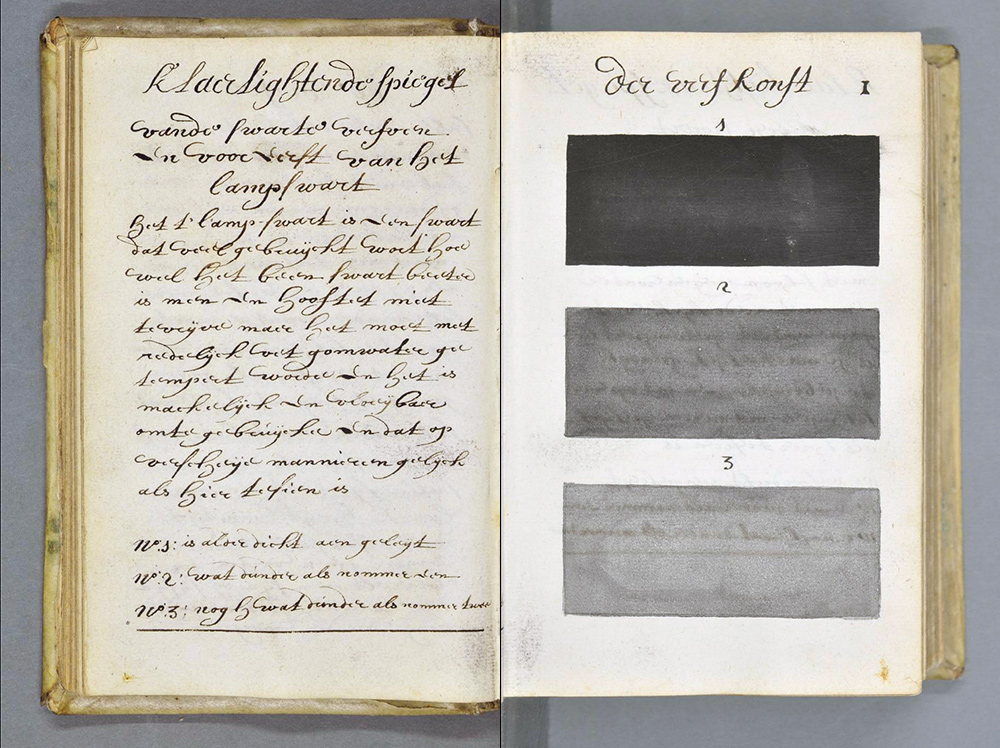 klaerlightende spiegel
vande swarte verfven
en voor eerst van het
lampswart
het t' lamp-swart is een swart
dat veel gebruijckt wort hoe
wel het been swart beeter
is men en hooft et niet
te vrijve maer het moet met
redelijck vet gomwater ge
tempert worde en het is
mackelijck en vloeijbaer
omte gebruijcke en dat op
verscheije mannieren gelijck
als hier tesien is
No.1: is alder dickt aen geleijt
No.2: wat dunder als nommer een
No.3: nog hwat dunder als nommer twee
der verfkonst 1
1
2
3